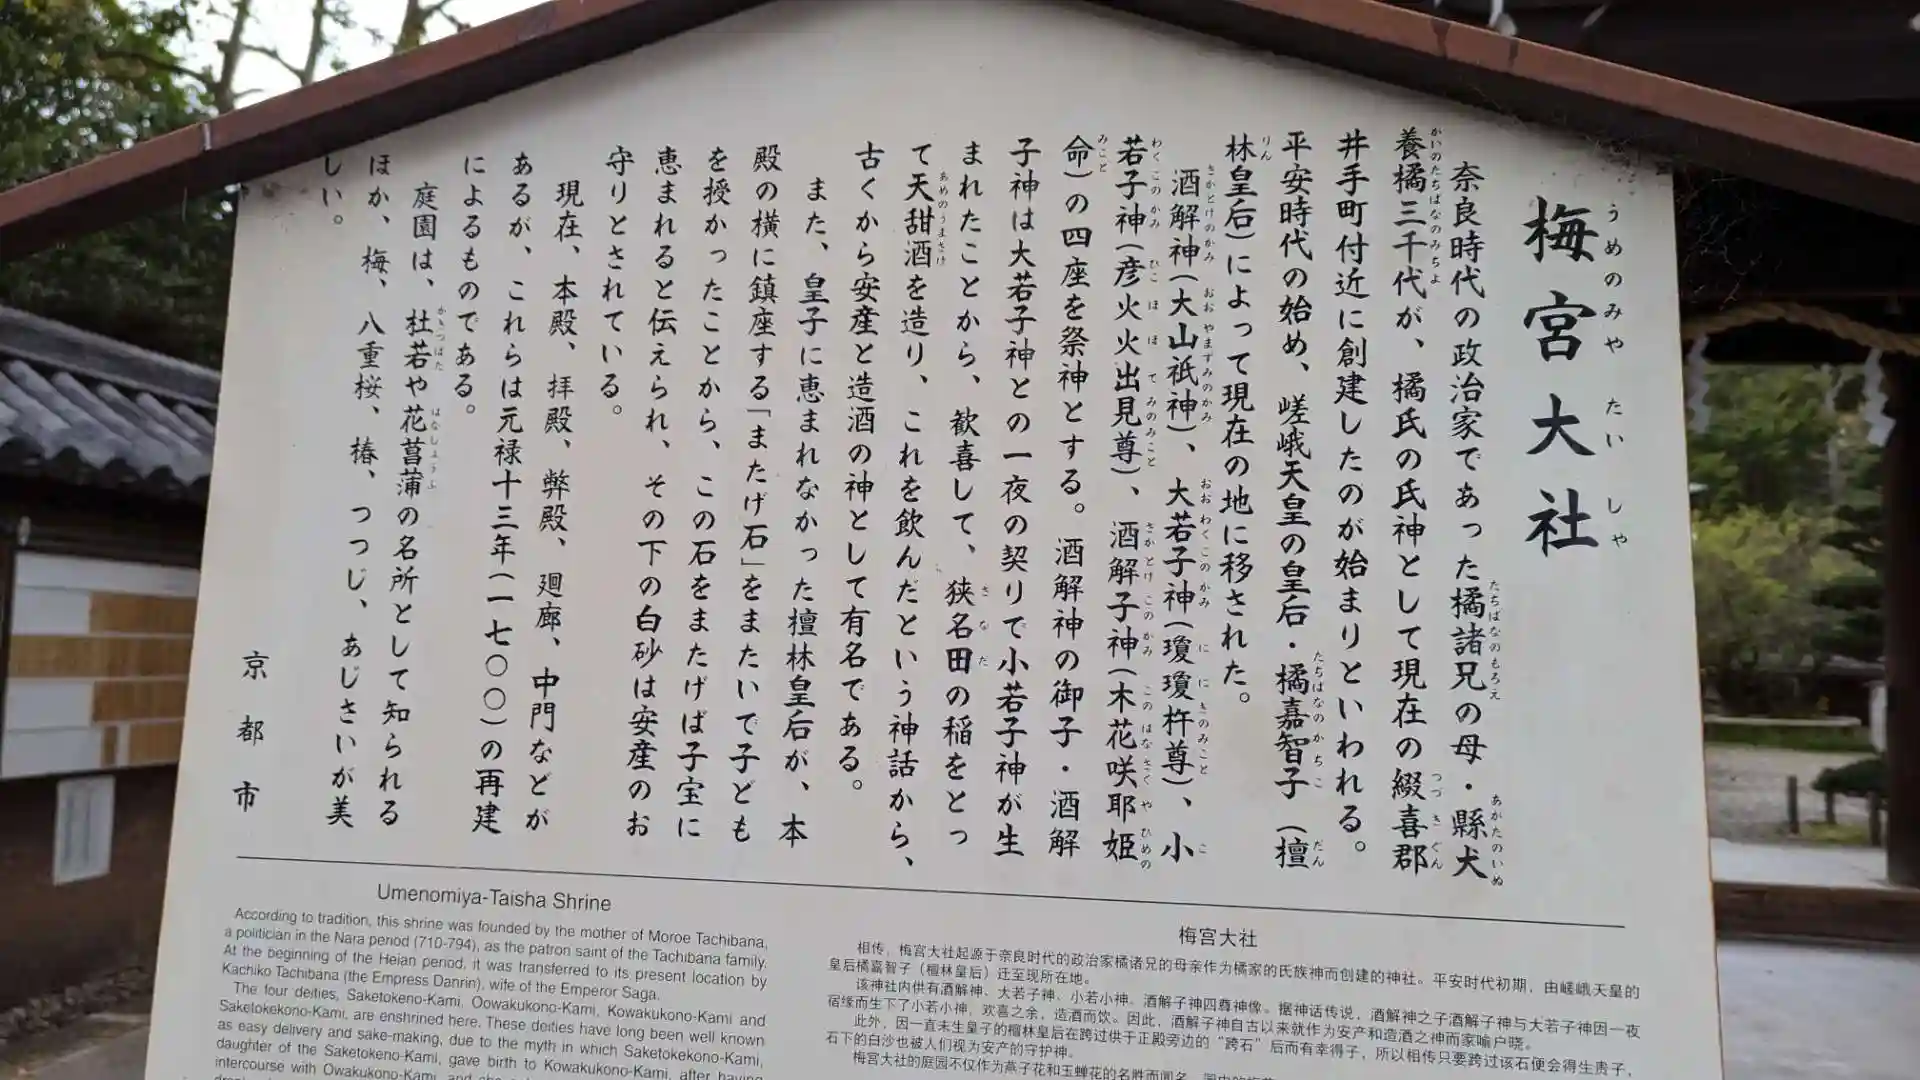 梅宮大社
うめのみやたいしゃ
奈良時代の政治家であった橘諸兄の母・縣犬
たちばなのもろえ あがたのいぬ
養橘三千代が、橘氏の氏神として現在の綴喜郡
かいのたちばなのみちよ つづきぐん
井手町付近に創建したのが始まりといわれる。
平安時代の始め、嵯峨天皇の皇后・橘嘉智子（檀
たちばなのかちこ だん
林皇后）によって現在の地に移された。
りん
酒解神（大山祇神）、大若子神（瓊瓊杵尊）、小
さかとけのかみ おおやまずみのかみ おおわくこのかみ ににぎのみこと こ
若子神（彦火火出見尊）、酒解子神（木花咲耶姫
わくこのかみ ひこほほでみのみこと さかとけこのかみ このはなさくやひめの
命）の四座を祭神とする。酒解神の御子・酒解
みこと
子神は大若子神との一夜の契りで小若子神が生
まれたことから、歓喜して、狭名田の稲をとっ
さなだ
て天甜酒を造り、これを飲んだという神話から、
あめのうまさけ
古くから安産と造酒の神として有名である。
また、皇子に恵まれなかった檀林皇后が、本
殿の横に鎮座する「またげ石」をまたいで子ども
を授かったことから、この石をまたげば子宝に
恵まれると伝えられ、その下の白砂は安産のお
守りとされている。
現在、本殿、拝殿、弊殿、廻廊、中門などが
あるが、これらは元禄十三年（一七〇〇）の再建
によるものである。
庭園は、杜若や花菖蒲の名所として知られる
かきつばた はなしょうぶ
ほか、梅、八重桜、椿、つつじ、あじさいが美
しい。
京都市
Umenomiya-Taisha Shrine
According to tradition, this shrine was founded by the mother of Moroe Tachibana,
a politician in the Nara period (710-794), as the patron saint of the Tachibana family.
At the beginning of the Heian period, it was transferred to its present location by
Kachiko Tachibana (the Empress Danrin), wife of the Emperor Saga.
The four deities, Saketokeno-Kami, Oowakukono-Kami, Kowakukono-Kami and
Saketokekono-Kami, are enshrined here. These deities have long been well known
as easy delivery and sake-making, due to the myth in which Saketokekono-Kami,
daughter of the Saketokeno-Kami, gave birth to Kowakukono-Kami, after having
intercourse with Owakukono-Kami, and
梅宫大社
相传，梅宫大社起源于奈良时代的政治家橘诸兄的母亲作为橘家的氏族神而创建的神社。平安时代初期，由嵯峨天皇的
皇后橘嘉智子（檀林皇后）迁至现所在地。
该神社内供有酒解神、大若子神、小若小神、酒解子神四尊神像。据神话传说，酒解神之子酒解子神与大若子神因一夜
宿缘而生下了小若小神，欢喜之余，造酒而饮。因此，酒解子神自古以来就作为安产和造酒之神而家喻户晓。
此外，因一直未生皇子的檀林皇后在跨过供于正殿旁边的“跨石”后而有幸得子，所以相传只要跨过该石便会得生贵子，
石下的白沙也被人们视为安产的守护神。
梅宫大社的庭园不仅作为燕子花和玉蝉花的名胜而闻名，